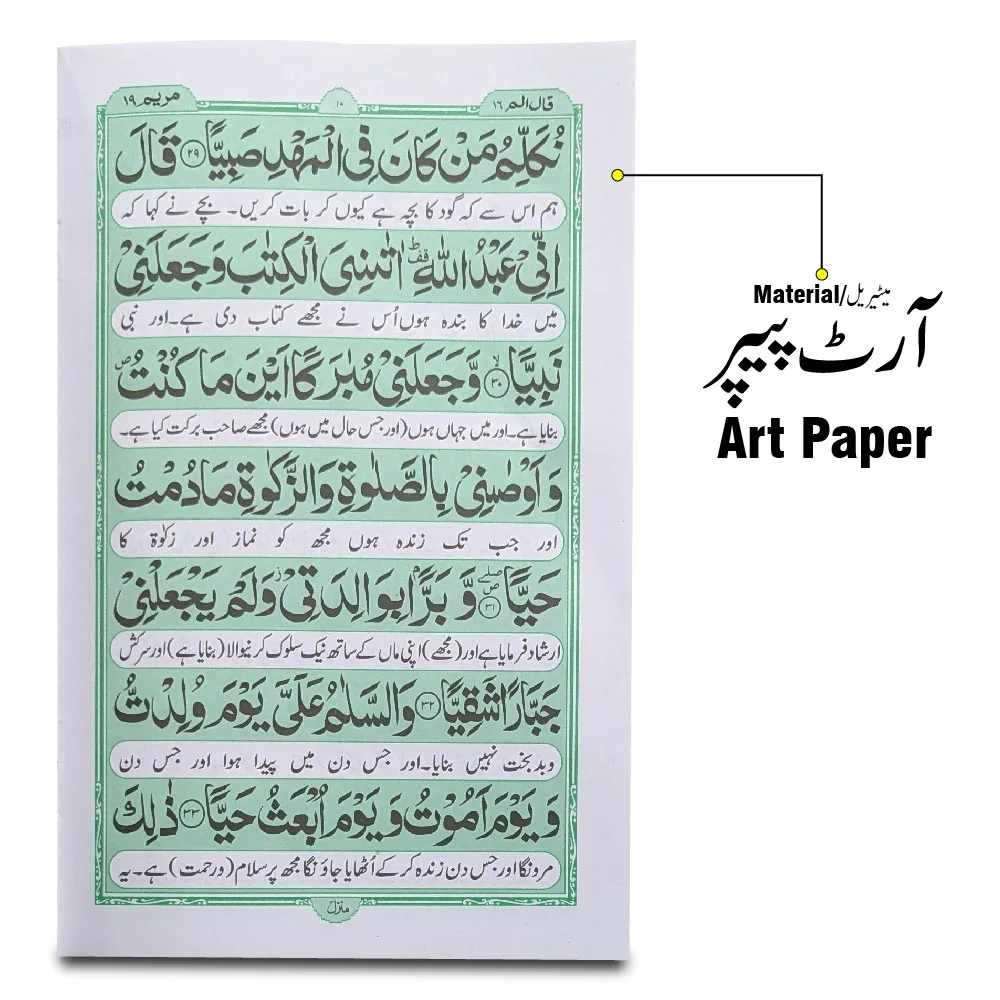 قال الم ١٦
١٠
مريم ١٩
نُكَلِّمُ مَنْ كَانَ فِى الْمَهْدِ صَبِيًّا ٢٩ قَالَ
ہم اس سے کہ گود کا بچہ ہے کیوں کر بات کریں۔ بچے نے کہا کہ
اِنِّىْ عَبْدُ اللّٰهِ ؕ قف اٰتٰىنِىَ الْكِتٰبَ وَجَعَلَنِىْ
میں خدا کا بندہ ہوں اُس نے مجھے کتاب دی ہے۔اور نبی
نَبِيًّا ۙ ٣٠ وَّجَعَلَنِىْ مُبٰرَكًا اَيْنَ مَا كُنْتُ ص
بنایا ہے۔اور میں جہاں ہوں (اور جس حال میں ہوں) مجھے صاحب برکت کیا ہے۔
وَاَوْصٰىنِىْ بِالصَّلٰوةِ وَالزَّكٰوةِ مَا دُمْتُ
اور جب تک زندہ ہوں مجھ کو نماز اور زکوٰۃ کا
حَيًّا صلے ص ٣١ وَّبَرًّاۢ بِوَالِدَتِىْ ز وَلَمْ يَجْعَلْنِىْ
ارشاد فرمایا ہے اور (مجھے) اپنی ماں کے ساتھ نیک سلوک کرنیوالا (بنایا ہے) اور سرکش
جَبَّارًا شَقِيًّا ٣٢ وَالسَّلٰمُ عَلَىَّ يَوْمَ وُلِدْتُّ
وبدبخت نہیں بنایا۔اور جس دن میں پیدا ہوا اور جس دن
وَيَوْمَ اَمُوْتُ وَيَوْمَ اُبْعَثُ حَيًّا ٣٣ ذٰلِكَ
مرونگا اور جس دن زندہ کر کے اُٹھایا جاؤنگا مجھ پر سلام (ورحمت) ہے۔یہ
منزل
Material/میٹیریل
آرٹ پیپر
Art Paper